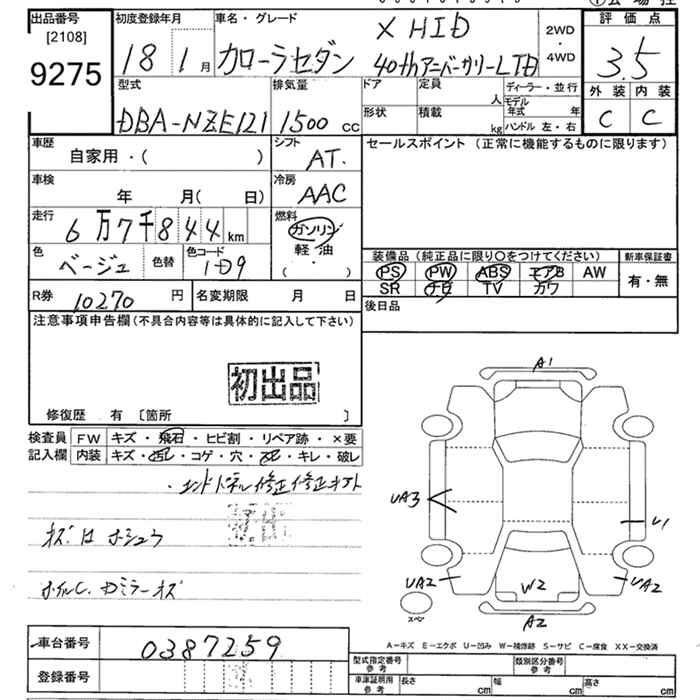 出品番号 初度登録年月 車名・グレード 評価点
[2108]
9275
18 1月 カローラセダン X HID
40thアニバーサリーLTD
2WD・4WD
3.5
型式 排気量 ドア 定員 人 ディーラー・並行
DBA-NZE121 1500 cc
形状 積載 kg モデル年式 年
ハンドル 左・右
外装 内装
C C
車歴 シフト セールスポイント (正常に機能するものに限ります)
自家用・( ) AT.
車検 冷房
年 月( 日) AAC
走行 燃料
6万7千844km ガソリン
軽・油
( ・ )
色 色替 色コード
ベージュ 1D9
装備品 (純正品に限り〇をつけてください) 新車保証書
PS PW ABS エアB AW 有・無
SR ナビ TV カワ
R券 10270 円 名変期限 月 日 後日品
注意事項申告欄(不具合内容等は具体的に記入して下さい)
初出品
修復歴 有 〔箇所 〕
検査員 FW キズ・飛石・ヒビ割・リペア跡・×要
記入欄 内装 キズ・コゲ・穴・キレ・破レ
A1
UA3 U1
UA2 W2 UA2
スペア A2
A-キズ E-エクボ U-凹み W-補修跡 S-サビ C-腐食 XX-交換済
車台番号 0387259
登録番号
型式指定番号 参考 類別区分番号 参考
車庫証明用 参考 長さ cm 幅 cm 高さ cm